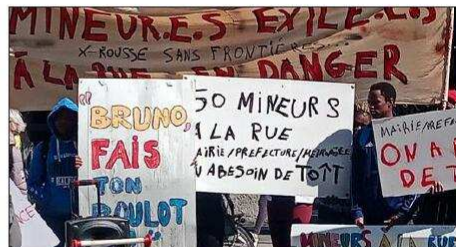 MINEUR.E.S EXILÉ.E.S
X-ROUSSE SANS FRONTIÈRES
À LA RUE EN DANGER
"BRUNO,
FAIS
TON
BOULOT
50 MINEURS
À LA RUE
MAIRIE/PRÉFECTURE/MÉTROPOLE
ON A BESOIN DE TOIT
MAIRIE/PREFE
ON A
DE T
MINEURS À LA RUE